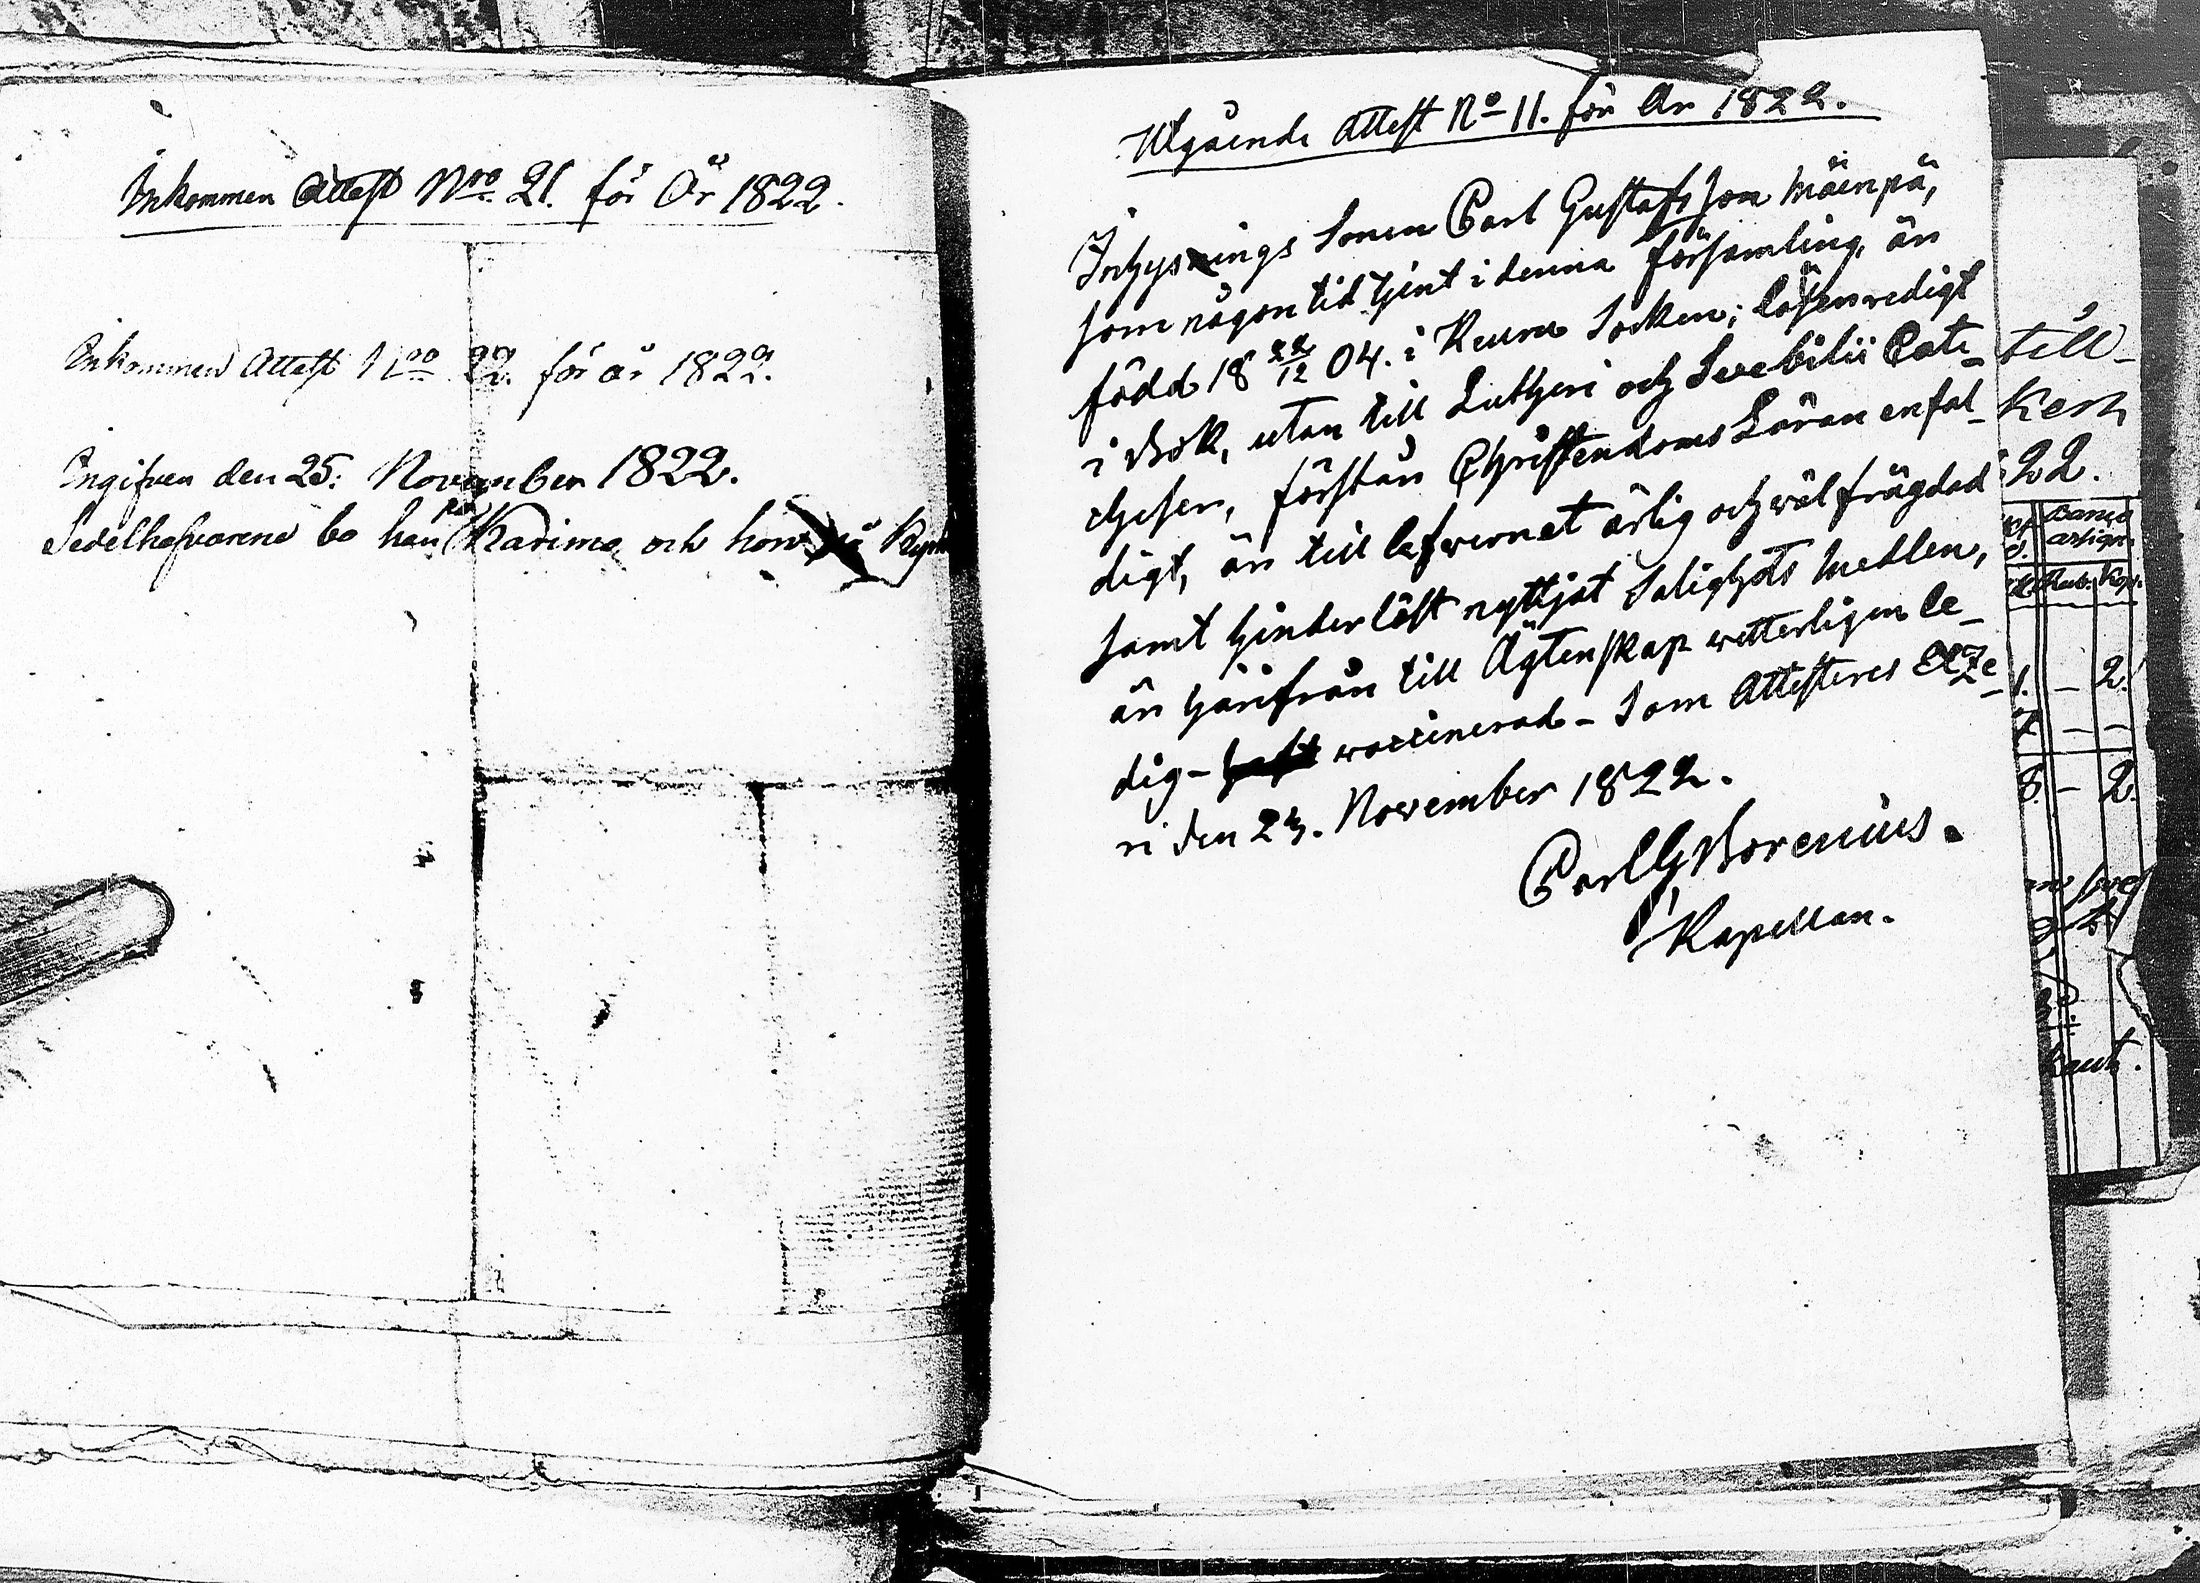 Inkommen Attest Nro 21. för År 1822.
Inkommen Attest Nro 22. för år 1822.
Ingifven den 25: November 1822.
Sedelhafvarene bo han på Karimo och hon på
Utgående Attest No 11. för År 1822.
Inhysnings Sonen Carl Gustafsson Mäenpä,
som någon tid tjent i denna församling, är
född 18 22/12 04. i Keuru Socken; läser redigt
i Bok, utan till Lutheri och Svebilii Cate-
cheser, förstår Christendoms Läran enfal-
digt, är till lefvernet ärlig och välfrägdad
samt hinderlöst nyttjat Salighets Medlen,
är härifrån till Ägtenskap vetterligen le-
dig - haft vaccinerad - Som Attesteres Etze-
ri den 23. November 1822.
Carl G Borenius.
Kapellan.
till
Kesh
22.
Banco
assign.
Rub. Kop.
1. - 2.
7 - -
8. - 2.